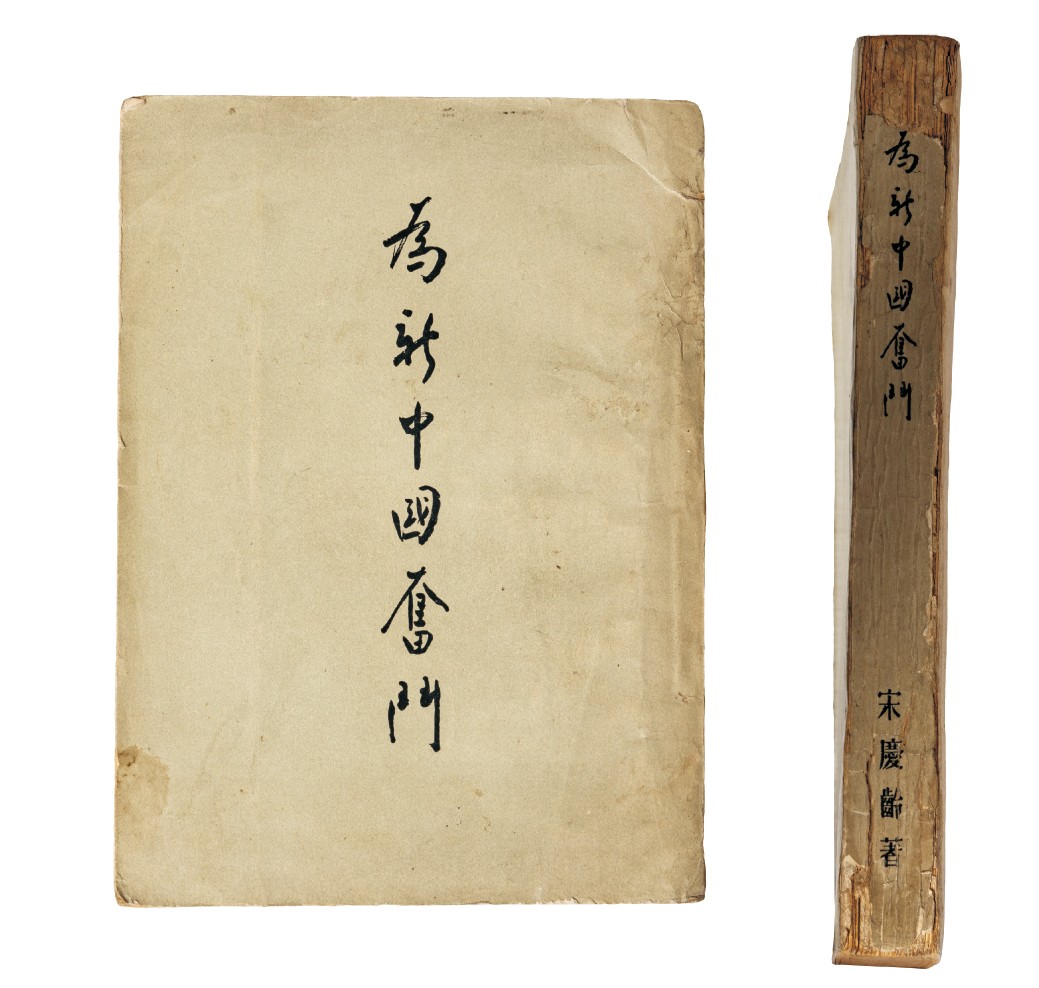 為新中國奮鬥
為新中國奮鬥
宋慶齡著